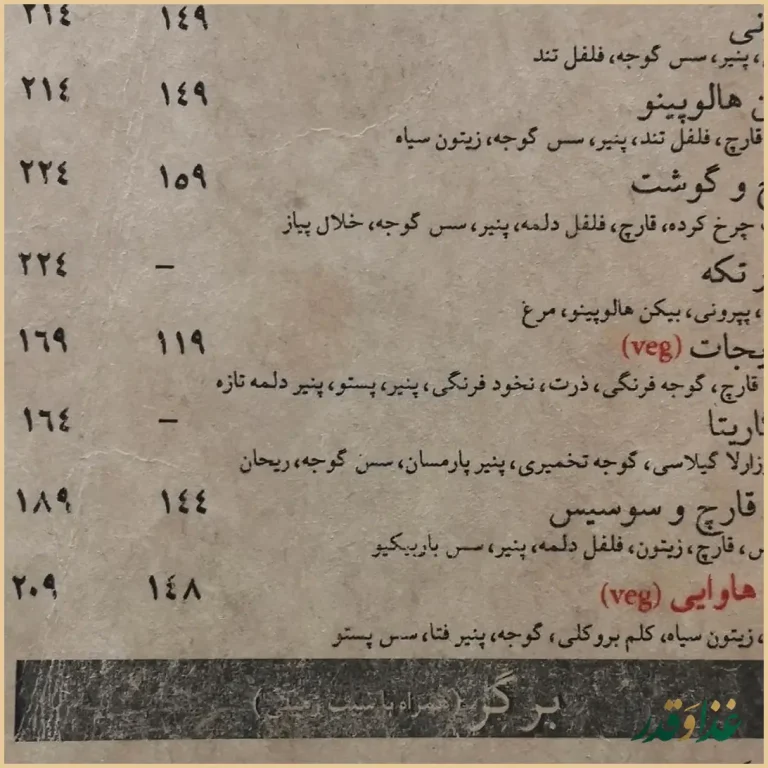 ١٤٩ ٢١٤
پنیر، سس گوجه، فلفل تند
هالوپینو ١٤٩ ٢١٤
قارچ، فلفل تند، پنیر، سس گوجه، زیتون سیاه
و گوشت ١٥٩ ٢٢٤
چرخ کرده، قارچ، فلفل دلمه، پنیر، سس گوجه، خلال پیاز
تکه – ٢٢٤
، پپرونی، بیکن هالوپینو، مرغ
(veg) ١١٩ ١٦٩
قارچ، گوجه فرنگی، ذرت، نخود فرنگی، پنیر، پستو، پنیر دلمه تازه
– ١٦٤
گیلاسی، گوجه تخمیری، پنیر پارمسان، سس گوجه، ریحان
قارچ و سوسیس ١٤٤ ١٨٩
قارچ، زیتون، فلفل دلمه، پنیر، سس باربیکیو
هاوایی (veg) ١٤٨ ٢٠٩
، زیتون سیاه، کلم بروکلی، گوجه، پنیر فتا، سس پستو
برگر (همراه با سیب زمینی)
غذا و قدر